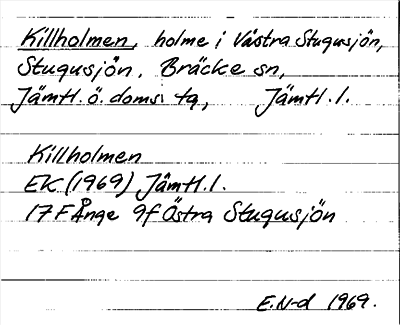 Killholmen, holme i Västra Stugusjön,
Stugusjön, Bräcke sn,
Jämtl. ö. doms. tg, Jämtl. l.
Killholmen
EK (1969) Jämtl. l.
17F Ånge 9f Östra Stugusjön
E. N-d 1969.